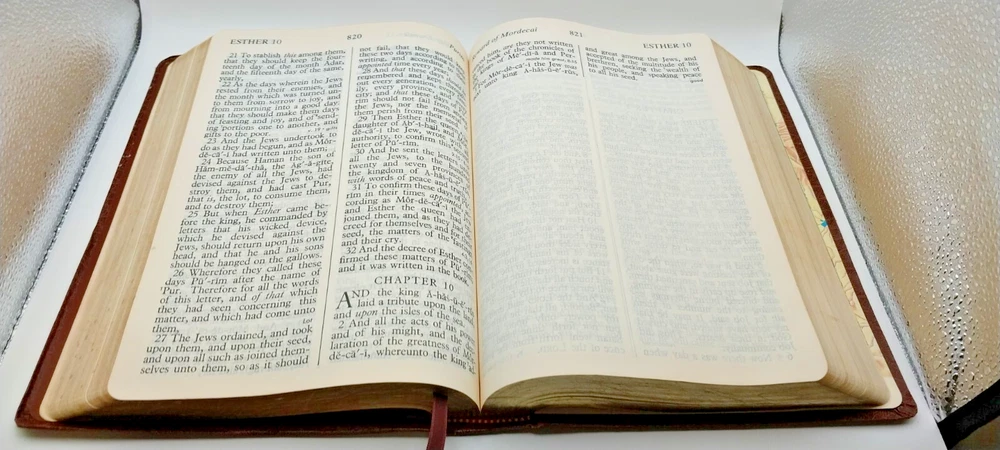 ESTHER 10
820
21 To stablish this among them,
that they should keep the four-
teenth day of the month Adar,
and the fifteenth day of the same,
yearly,
22 As the days wherein the Jews
rested from their enemies, and
the month which was turned un-
to them from sorrow to joy, and
from mourning into a good day:
that they should make them days
of feasting and joy, and of send-
ing portions one to another, and
gifts to the poor.
23 And the Jews undertook to
do as they had begun, and as Môr-
dĕ-cā´-ī had written unto them;
24 Because Haman the son of
Hăm-mĕ-dā´-thȧ, the Ăg´-ȧ-gīte,
the enemy of all the Jews, had
devised against the Jews to de-
stroy them, and had cast Pur,
that is, the lot, to consume them,
and to destroy them;
25 But when Esther came be-
fore the king, he commanded by
letters that his wicked device,
which he devised against the
Jews, should return upon his own
head, and that he and his sons
should be hanged on the gallows.
26 Wherefore they called these
days Pū´-rim after the name of
Pur. Therefore for all the words
of this letter, and of that which
they had seen concerning this
matter, and which had come unto
them,
Lot
27 The Jews ordained, and took
upon them, and upon their seed,
and upon all such as joined them-
selves unto them, so as it should
not fail, that they would
these two days according
writing, and according
appointed time every
28 And that these days
remembered and kept
out every generation,
ily, every province, and
ity; and that these days
rim should not fail from
the Jews, nor the
them perish from their
29 Then Esther the queen
daughter of Ăb´-ĭ-hāil, and
the Jew, wrote
authority, to confirm this
letter of Pū´-rim.
30 And he sent the letters
all the Jews, to the
twenty and seven
the kingdom of
with words of peace and
31 To confirm these days of
rim in their times appointed
cording as Môr-dĕ-cā´-ī the
and Esther the queen had
joined them, and as they had
creed for themselves and for
seed, the matters of the
and their cry.
32 And the decree of Esther
firmed these matters of Pū´-rim
and it was written in the book.
CHAPTER 10
AND the king Ȧ-hăs-ū-ē´-rus
laid a tribute upon the
and upon the isles of the sea.
2 And all the acts of his
and of his might, and the
laration of the greatness of
dĕ-cā´-ī, whereunto the king
of Mordecai
821
ESTHER 10
him, are they not written
book of the chronicles of
kings of Mē´-dĭ-ȧ and Per-
Môr-dĕ-cā´-ī the Jew was
unto king Ȧ-hăs-ū-ē´-rus,
and great among the Jews, and
accepted of the multitude of his
brethren, seeking the wealth of
his people, and speaking peace
to all his seed.